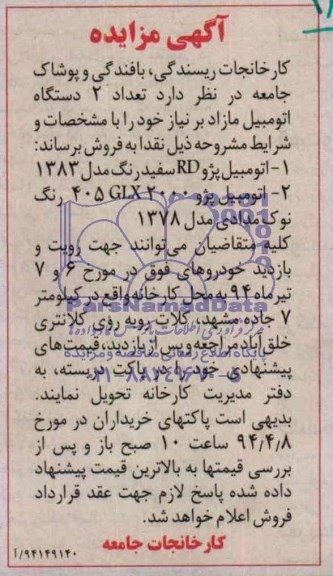 آگهی مزایده
کارخانجات ریسندگی، بافندگی و پوشاک
جامعه در نظر دارد تعداد ۲ دستگاه
اتومبیل مازاد بر نیاز خود را با مشخصات و
شرایط مشروحه ذیل نقدا به فروش برساند:
۱- اتومبیل پژو RD سفید رنگ مدل ۱۳۸۳
۲- اتومبیل پژو ۲۰۰۰ GLX ۴۰۵ رنگ
نوک مدادی مدل ۱۳۷۸
کلیه متقاضیان می‌توانند جهت رویت و
بازدید خودروهای فوق در مورخ ۶ و ۷
تیرماه ۹۴ به محل کارخانه واقع در کیلومتر
۷ جاده مشهد، کلات روبه روی کلانتری
خلق آباد مراجعه و پس از بازدید، قیمت‌های
پیشنهادی خود را در پاکت دربسته، به
دفتر مدیریت کارخانه تحویل نمایند.
بدیهی است پاکتهای خریداران در مورخ
۹۴,۴,۸ ساعت ۱۰ صبح باز و پس از
بررسی قیمتها به بالاترین قیمت پیشنهاد
داده شده پاسخ لازم جهت عقد قرارداد
فروش اعلام خواهد شد.
کارخانجات جامعه
۹۴۱۴۹۱۴۰/آ
ParsNamadData
پایگاه اطلاع رسانی مناقصه و مزایده